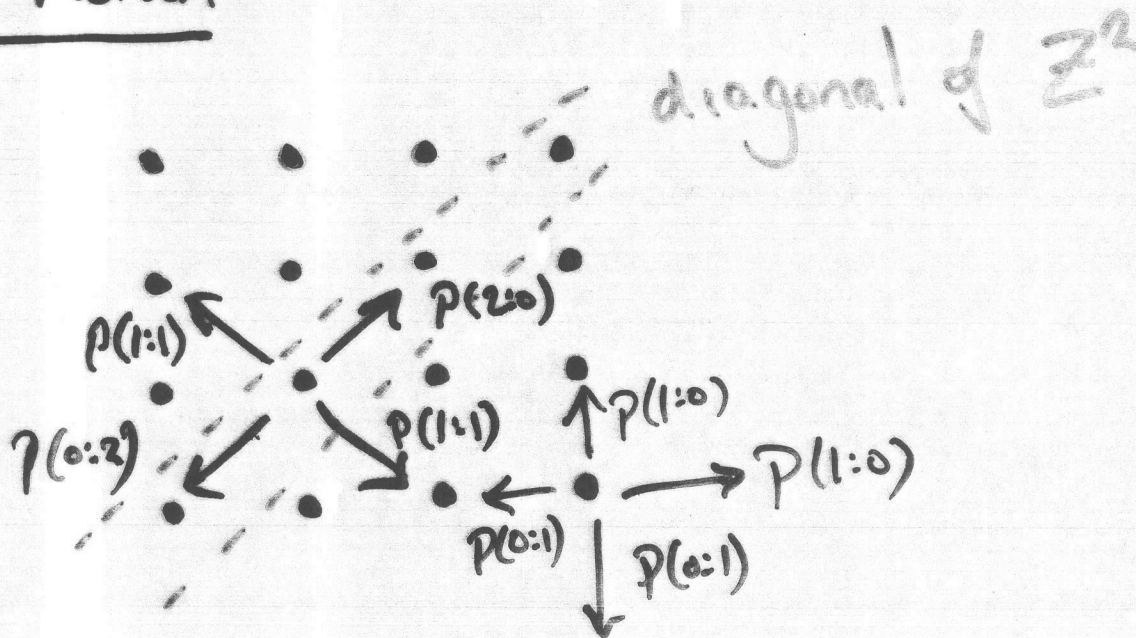 diagonal of Z²
P(2:0)
P(1:1)
P(1:0)
P(0:2)
P(1:1)
P(1:0)
P(0:1)
P(0:1)